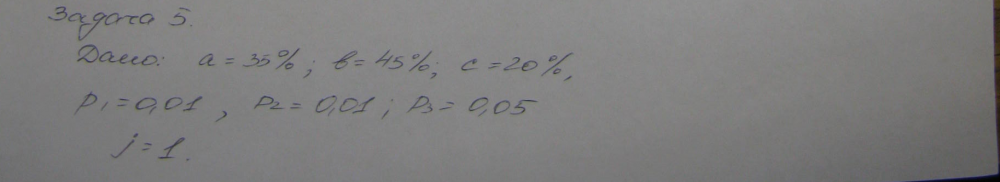 Задача 5.
Дано: a = 35%; b = 45%; c = 20%,
p₁ = 0,01, p₂ = 0,01; p₃ = 0,05
j = 1.